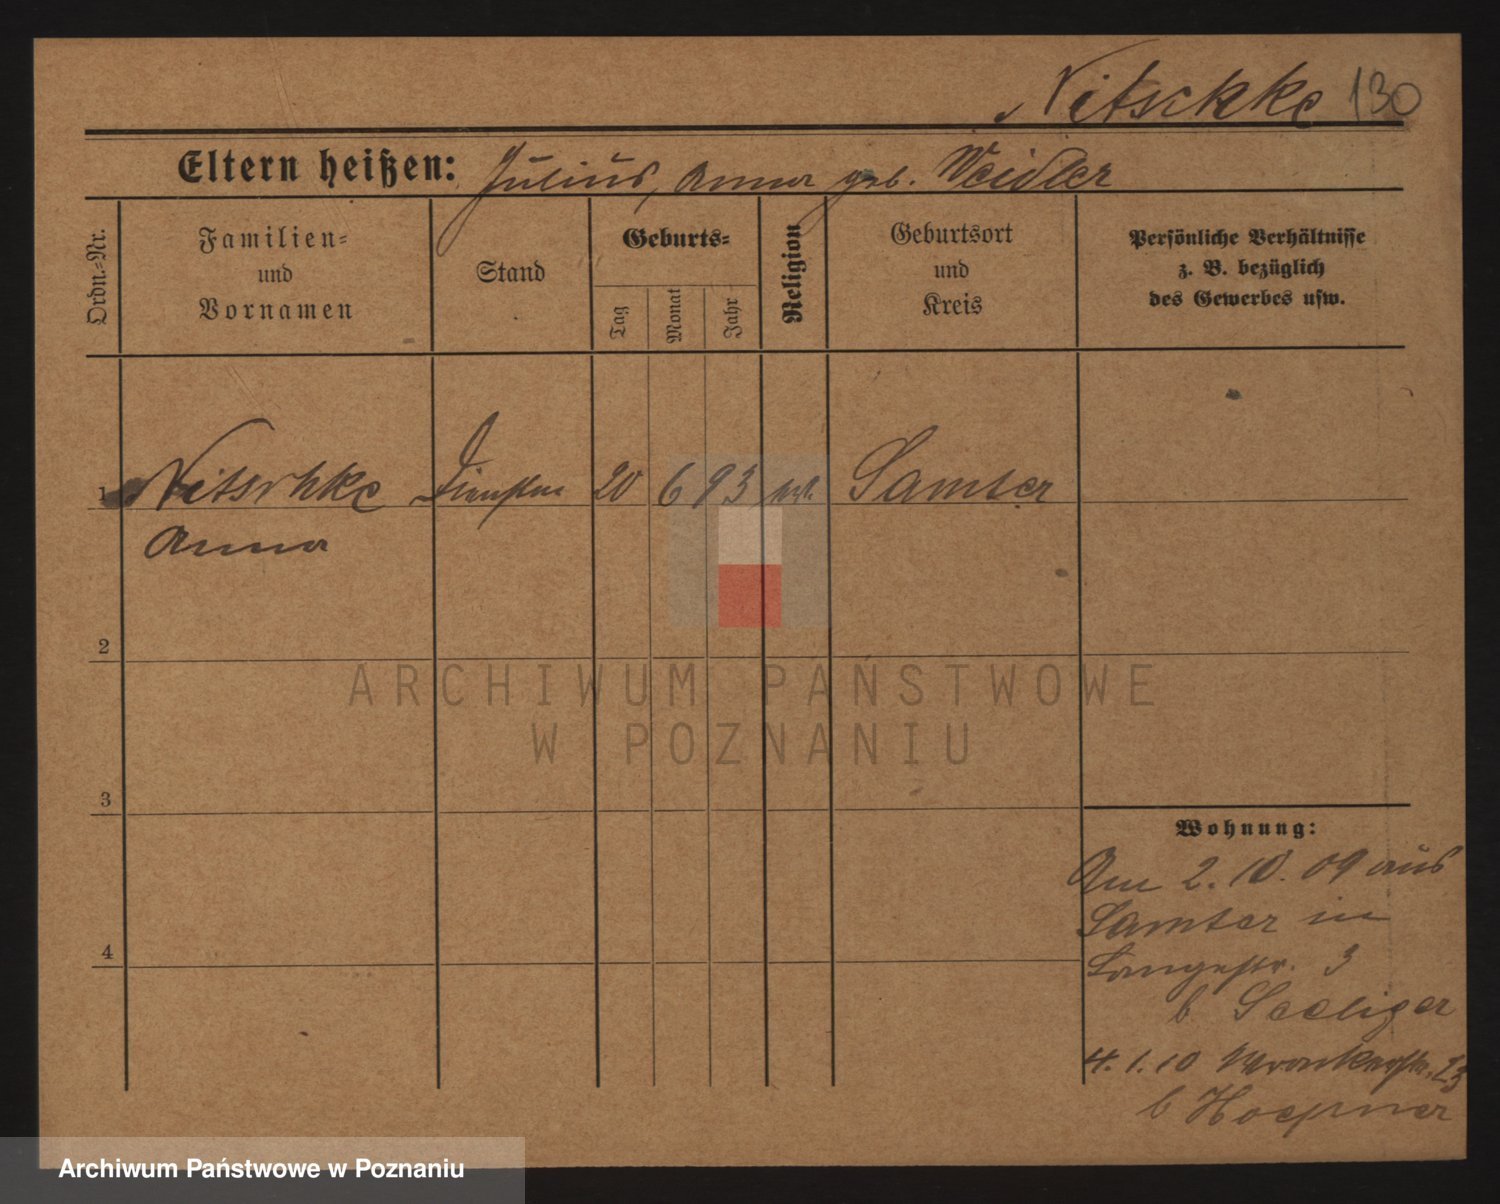 Nitschke 130
Eltern heißen: Julius, Anna geb. Weidler
Ordn.-Nr.
Familien-
und
Vornamen
Stand
Geburts-
Tag
Monat
Jahr
Religion
Geburtsort
und
Kreis
Persönliche Verhältnisse
z. B. bezüglich
des Gewerbes usw.
1 Nitschke 20 6 93 Samter
Anna
2
3
4
ARCHIWUM PAŃSTWOWE
W POZNANIU
Wohnung:
Am 2.10.09 aus
Samter in
Langestr. 3
b Seeliger
4.1.10 Wronkerstr. 23
b Hoepner
Archiwum Państwowe w Poznaniu